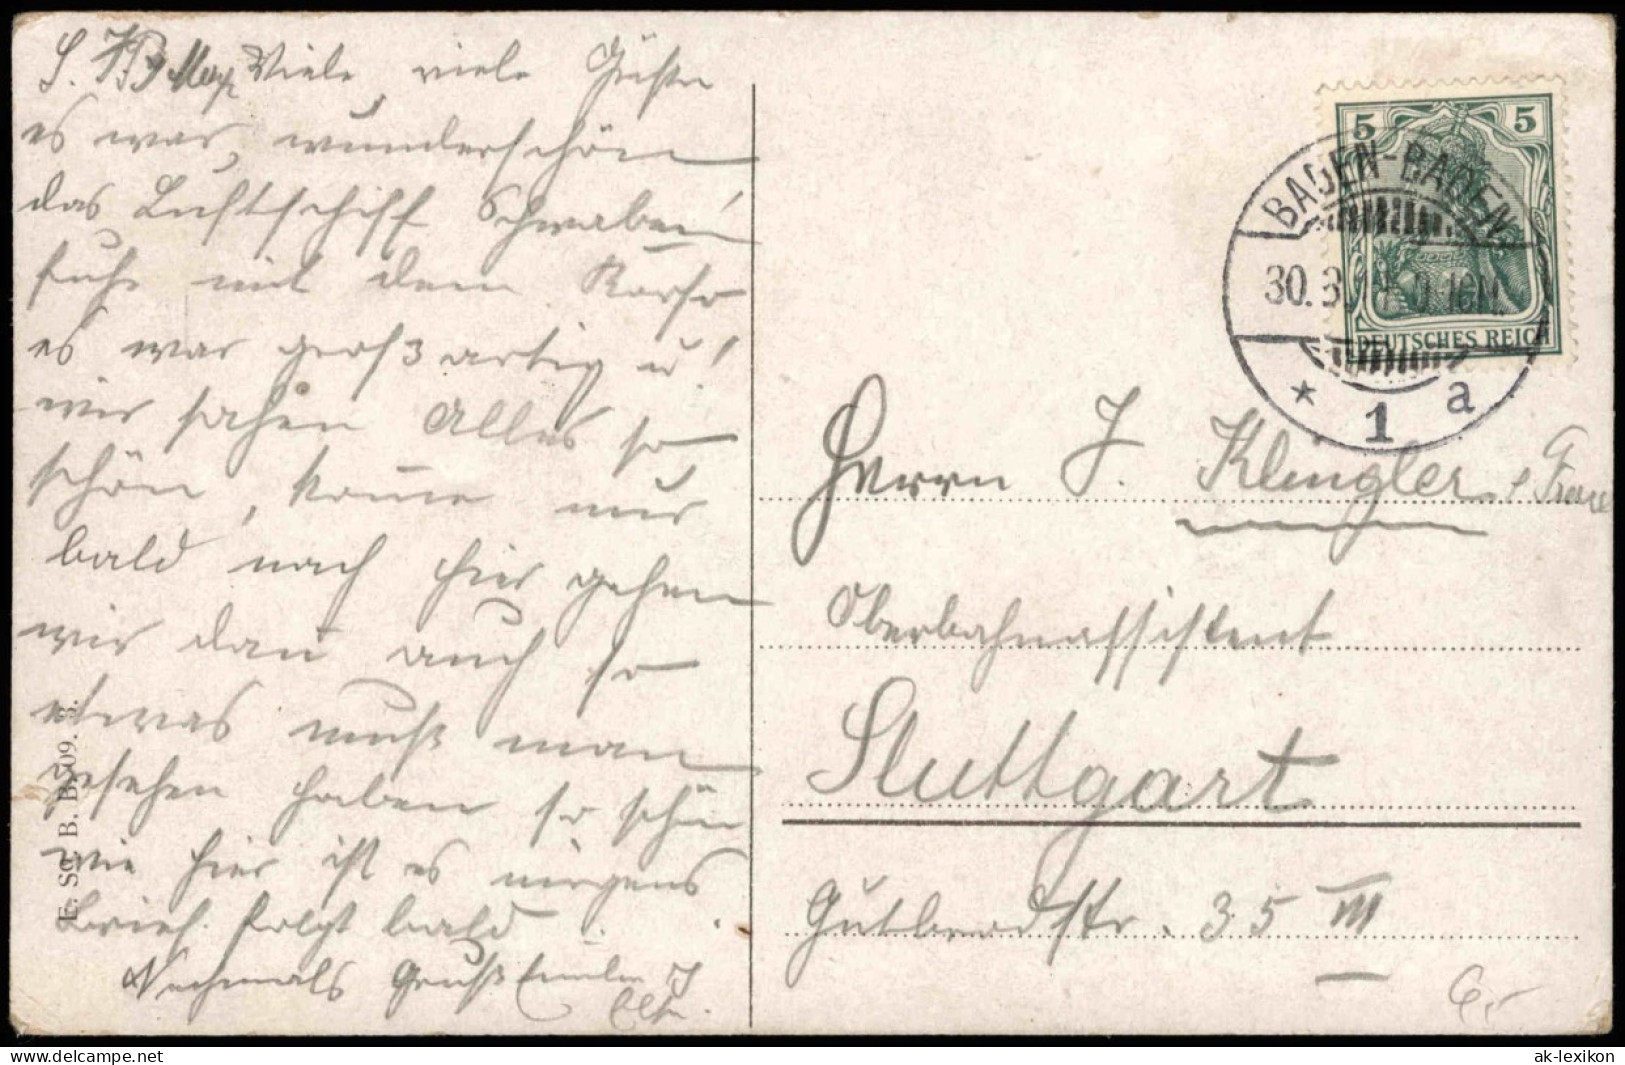 Viele, viele Grüße
es war wunderschön
das Luftschiff Schwaben
fuhr mit dem Korso
es war großartig u!
wir sahen Alles so
schön, komme nur
bald nach hier gehen
wir dann auch so
etwas muß man
gesehen haben so schön
wie hier ist es nirgens
Brief folgt bald.
Nochmals Gruß
E. St. B. B. 09. S.
5 5
BADEN-BADEN
30.
* 1 a
DEUTSCHES REICH
Herrn J. Klingler, Frau
Oberbahnassistent
Stuttgart
Gutbrodstr. 35 III
6,-
www.delcampe.net
ak-lexikon